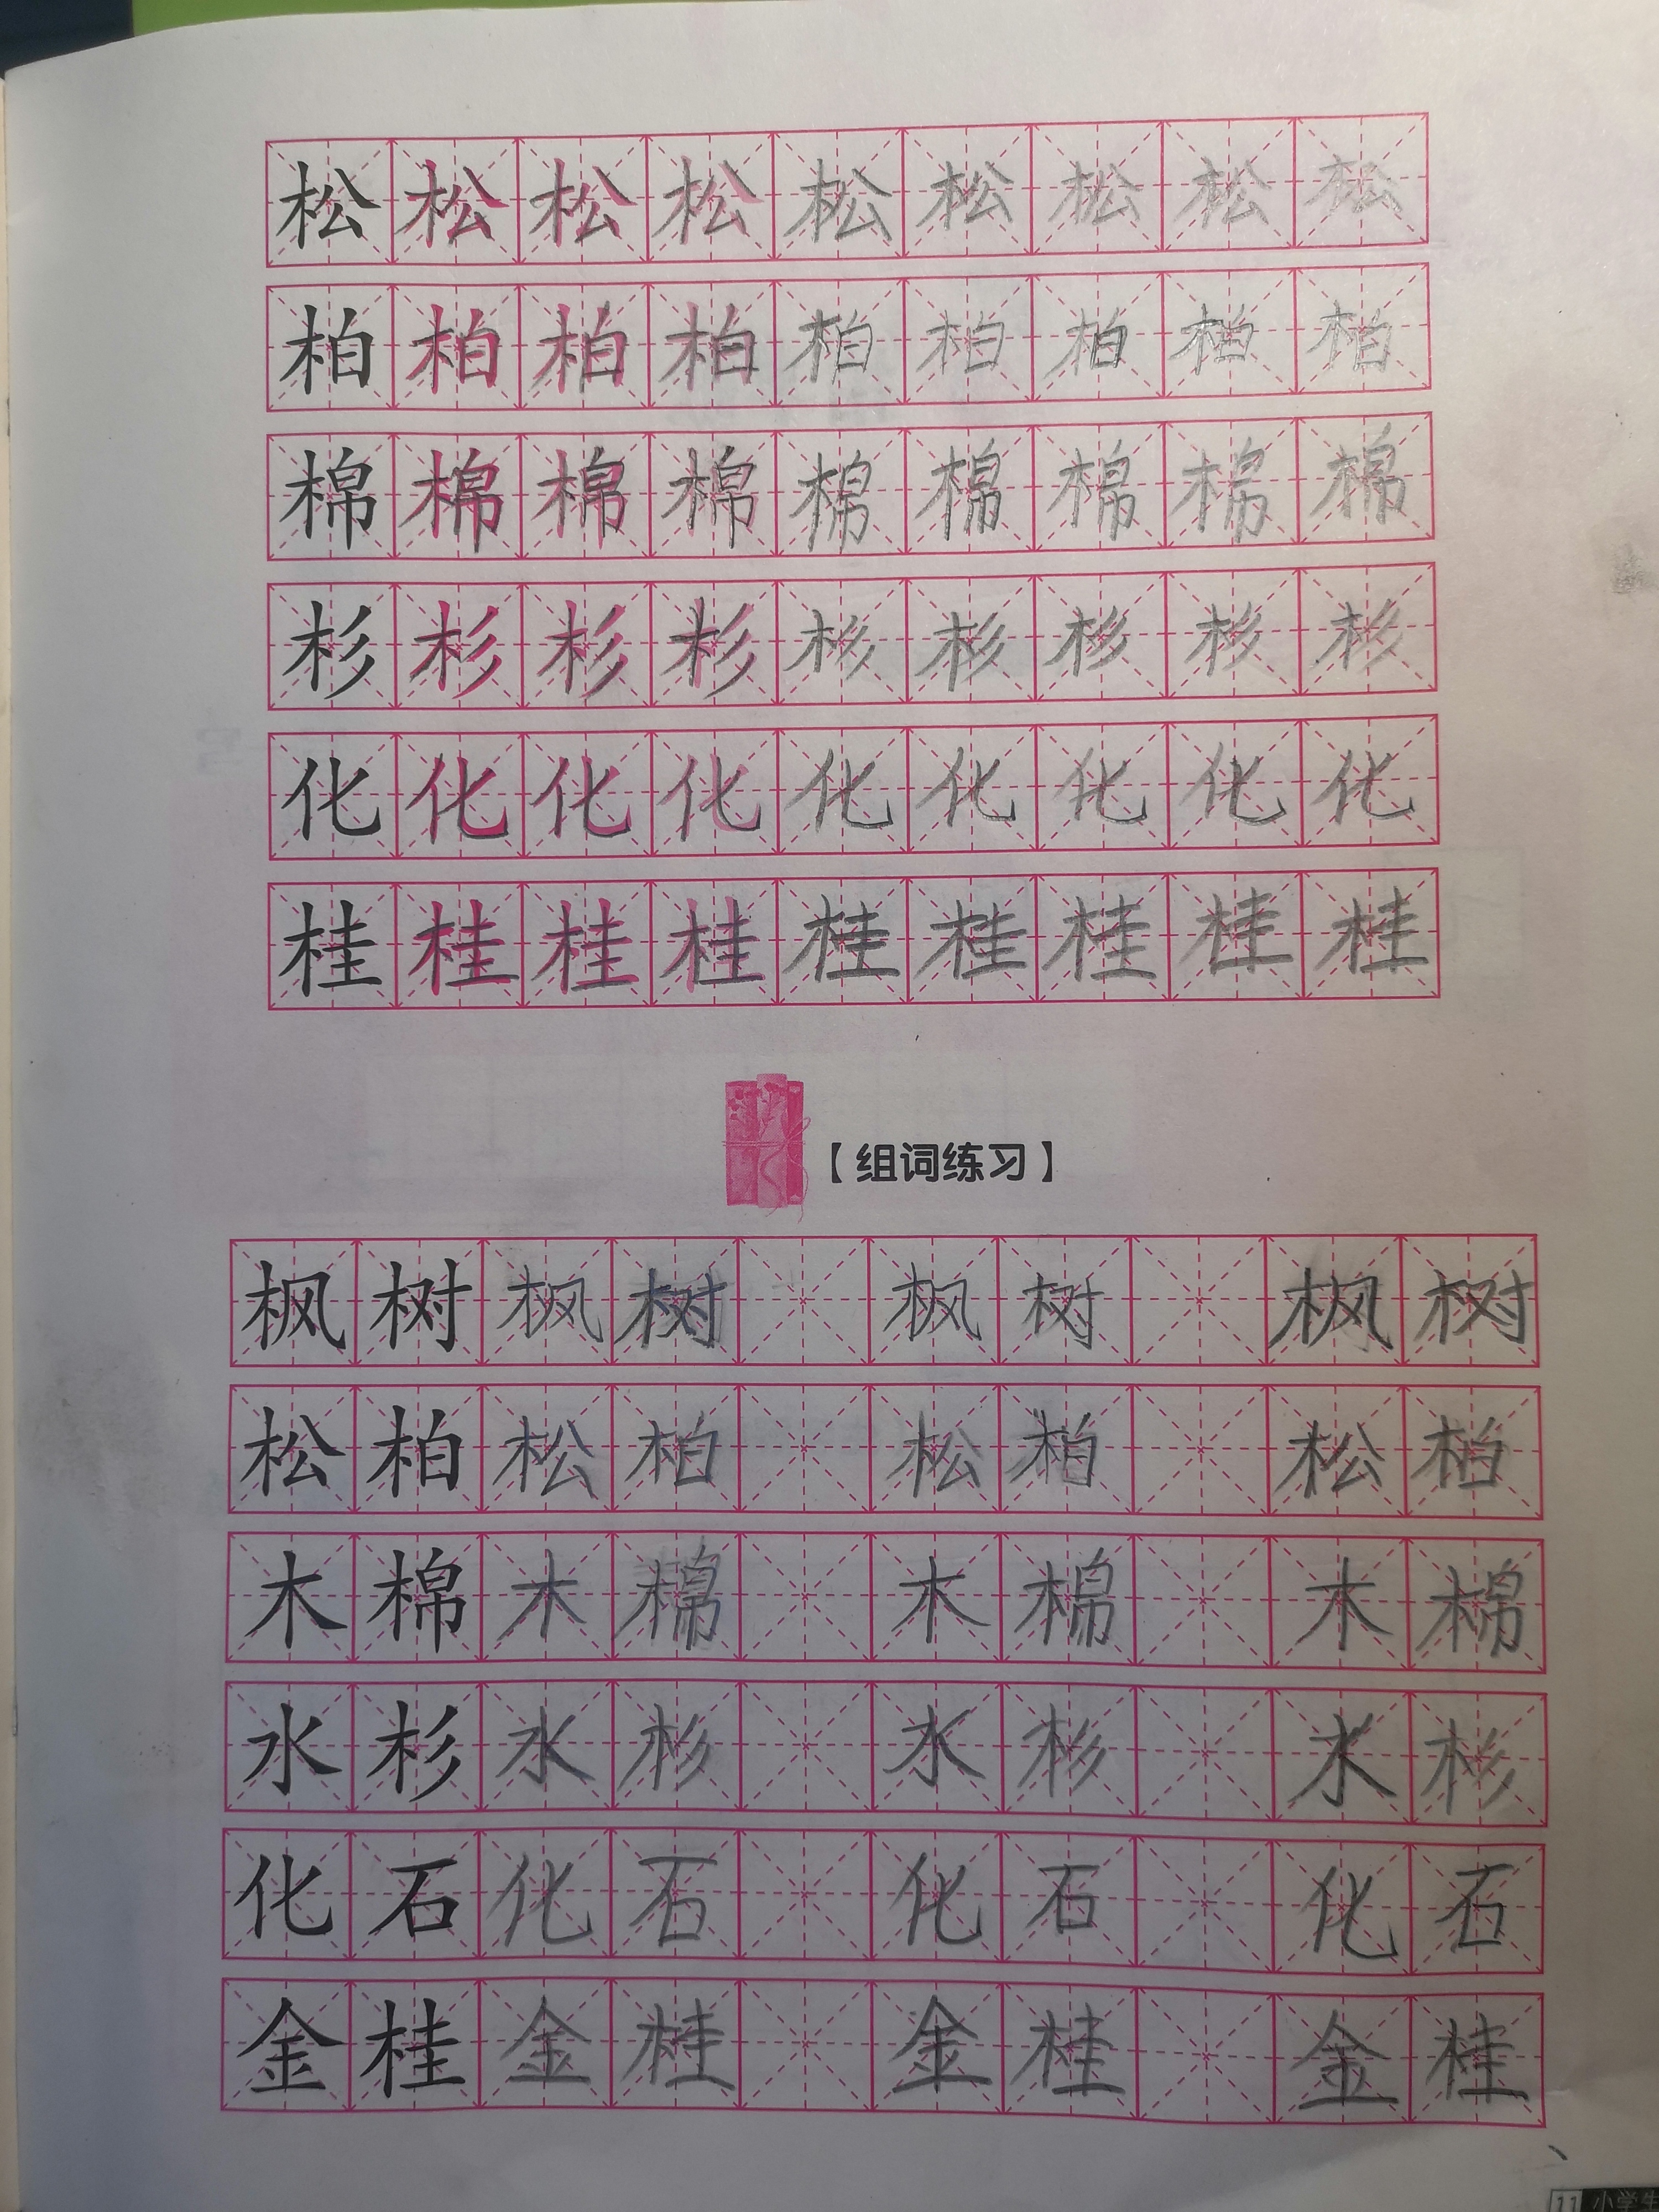 松松松松松松松松松
柏柏柏柏柏柏柏柏柏
棉棉棉棉棉棉棉棉棉
杉杉杉杉杉杉杉杉杉
化化化化化化化化化
桂桂桂桂桂桂桂桂桂
【组词练习】
枫树枫树 枫树 枫树
松柏松柏 松柏 松柏
木棉木棉 木棉 木棉
水杉水杉 水杉 水杉
化石化石 化石 化石
金桂金桂 金桂 金桂
11 小学生